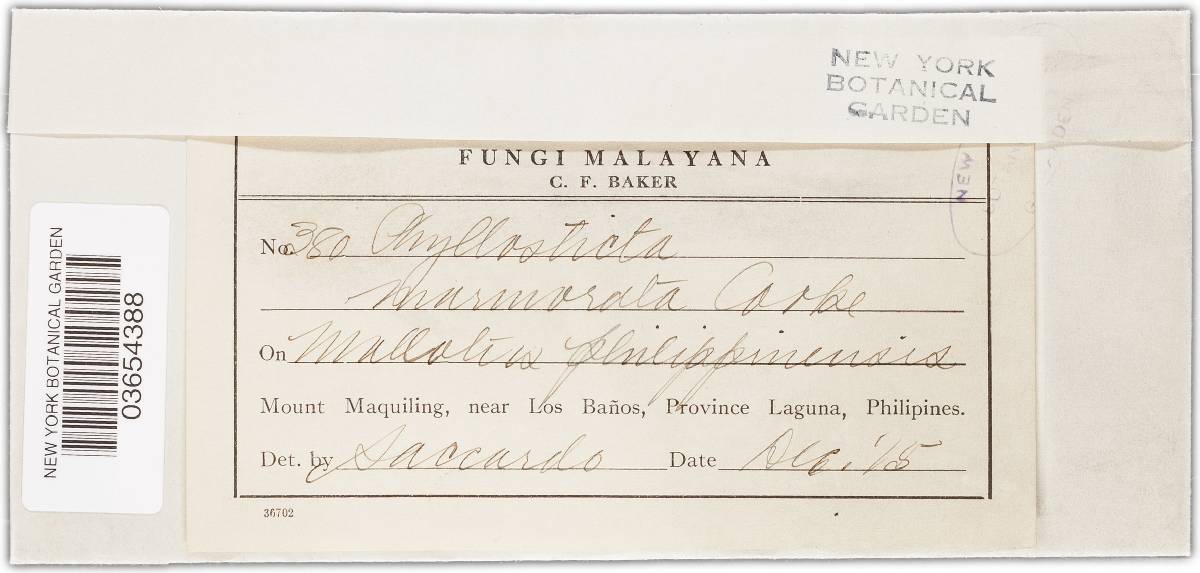 NEW YORK
BOTANICAL
GARDEN
FUNGI MALAYANA
C. F. BAKER
No. 380 Phyllosticta
marmorata Cooke
On Mallotus philippinensis
Mount Maquiling, near Los Baños, Province Laguna, Philipines.
Det. by Saccardo Date Dec. '15
36702
NEW YORK BOTANICAL GARDEN
03654388
NEW